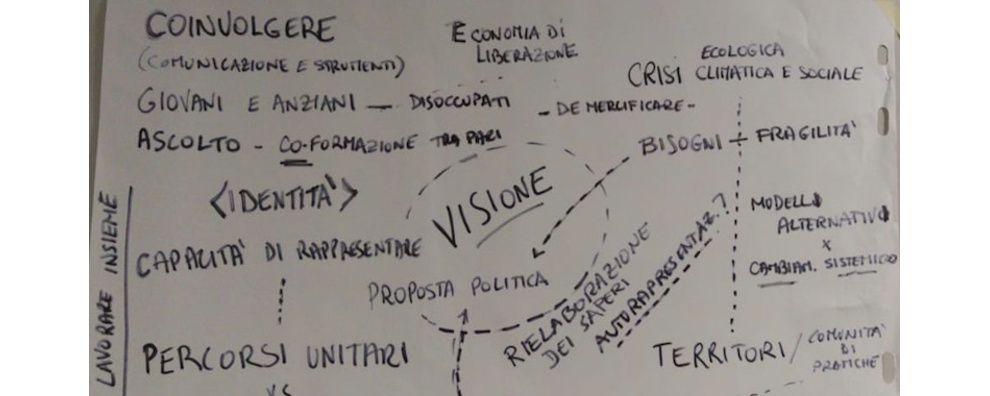 COINVOLGERE
(COMUNICAZIONE E STRUMENTI)
ECONOMIA DI
LIBERAZIONE
ECOLOGICA
CRISI CLIMATICA E SOCIALE
GIOVANI E ANZIANI — DISOCCUPATI
- DE MERCIFICARE -
ASCOLTO - CO-FORMAZIONE TRA PARI
BISOGNI + FRAGILITA'
<IDENTITA'>
VISIONE
MODELLO
ALTERNATIVO
+
CAMBIAM. SISTEMICO
LAVORARE INSIEME
CAPACITA' DI RAPPRESENTARE
PROPOSTA POLITICA
RIELABORAZIONE
DEI SAPERI
AUTORAPRESENTAZ.?
PERCORSI UNITARI
VS
TERRITORI / COMUNITA'
DI
PRATICHE